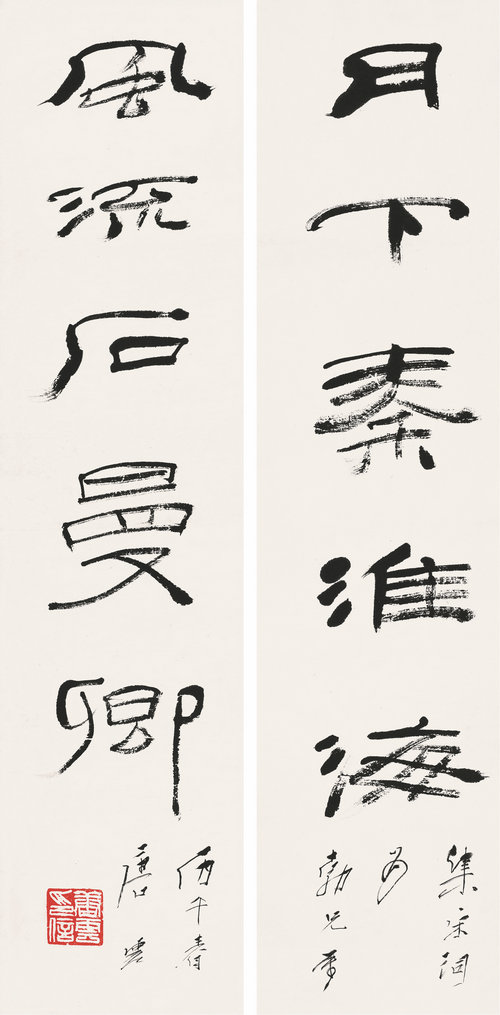 月下秦淮海
集宋詞
為
勃兄
風流石曼卿
丙午春
唐雲
唐雲
印信